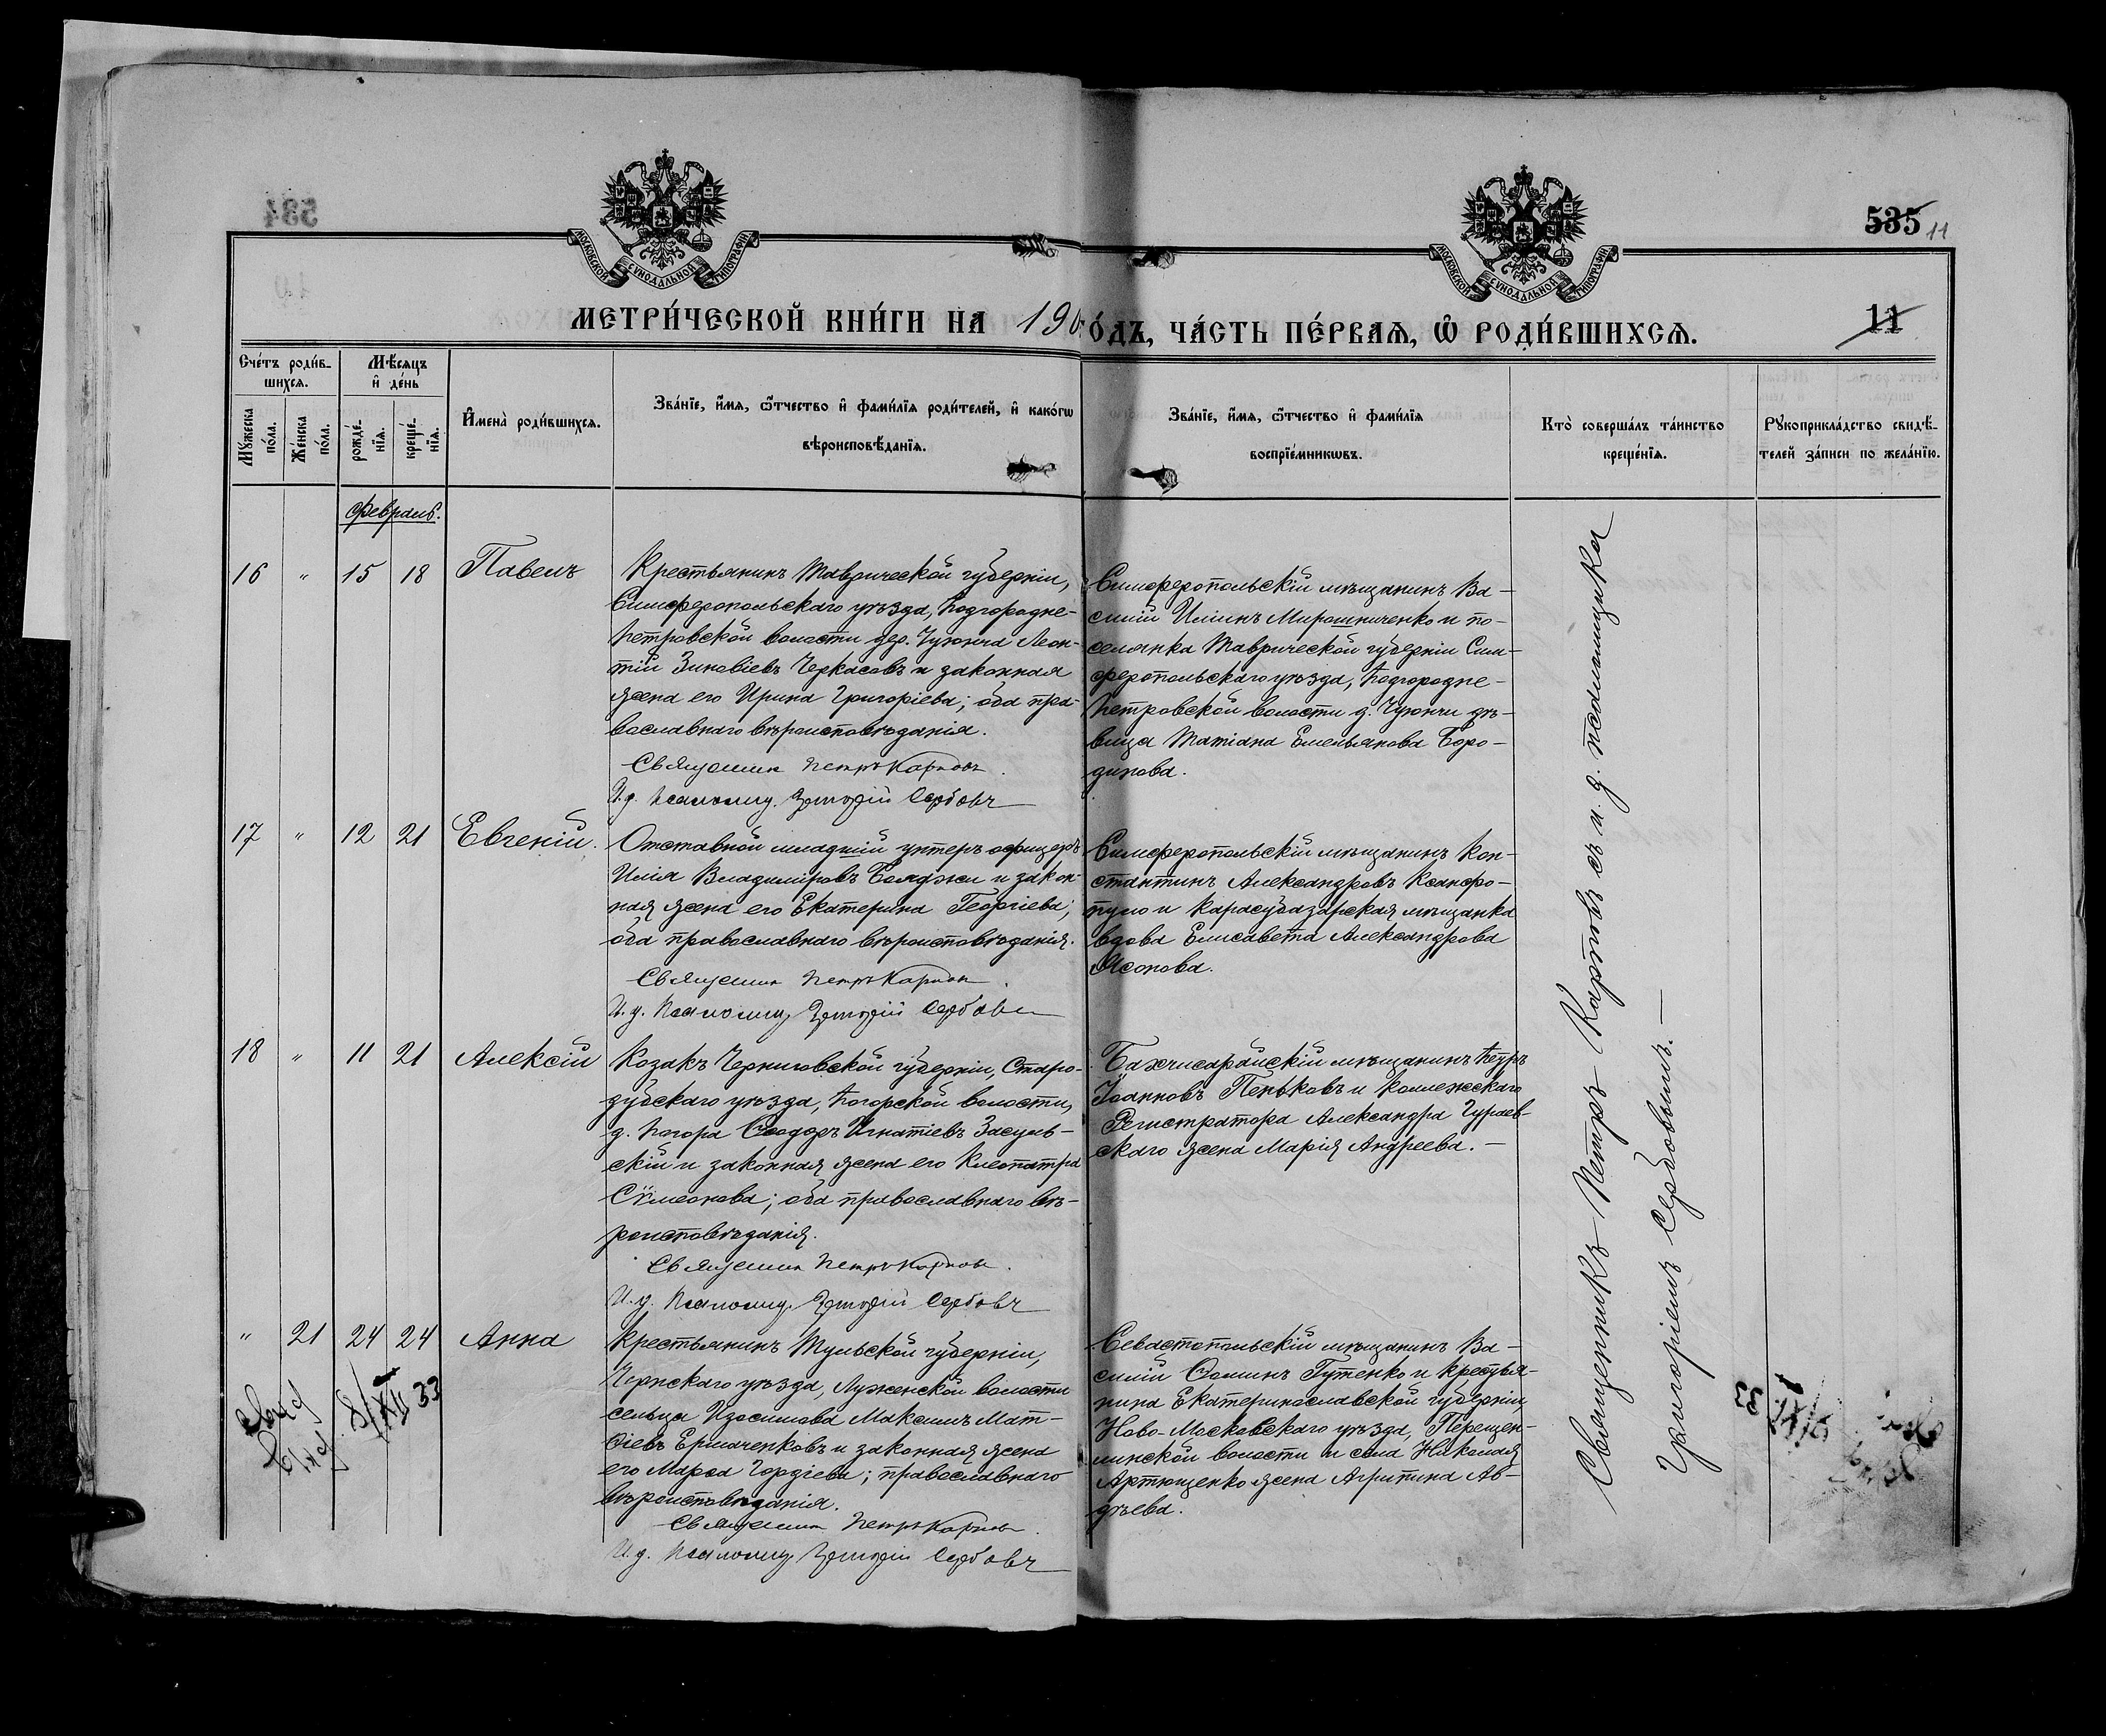 534
535 11
11
МОСКОВСКОЙ СѴНОДАЛЬНОЙ ТИПОГРАФІИ
МОСКОВСКОЙ СѴНОДАЛЬНОЙ ТИПОГРАФІИ
МЕТРИ́ЧЕСКОЙ КНИ́ГИ НА 190
О́ДЪ, ЧА́СТЬ ПЕ́РВАѦ, Ѽ РОДИ́ВШИХСѦ.
Сче́тъ роди́в-
шихсѧ.
Мѣ́сѧцъ
и҆ де́нь
Мꙋ́жеска
по́ла.
Же́нска
по́ла.
рожде́-
нїѧ.
креще́-
нїѧ.
И҆мена̀ роди́вшихсѧ.
Зва́нїе, и҆́мѧ, ѻ҆́тчество и҆ фами́лїѧ роди́телей, и҆ како́гѡ
вѣроисповѣ́данїѧ.
Зва́нїе, и҆́мѧ, ѻ҆́тчество и҆ фами́лїѧ
воспрїе́мникѡвъ.
Кто̀ соверша́лъ та́инство
креще́нїѧ.
Рꙋкоприкла́дство свидѣ́-
телей за́писи по жела́нїю.
Февраль.
16 " 15 18 Павелъ
Крестьянинъ Таврической губерніи,
Симферопольскаго уѣзда, Подгородне-
Петровской волости дер. Чуюнча Леон-
тій Зиновіевъ Черкасовъ и законная
жена его Ирина Григоріева; оба пра-
вославнаго вѣроисповѣданія.
Священник Петръ Карпов.
И.д. Псаломщ. Григорій Сербовъ
Симферопольскій мѣщанинъ Ва-
силій Иліинъ Мирошниченко и по-
селянка Таврической губерніи Сим-
феропольскаго уѣзда, Подгородне-
Петровской волости д. Чуюнчи дѣ-
вица Татіана Емельянова Боро-
динова.
17 " 12 21 Евгеній.
Отставной младшій унтеръ офицеръ
Илія Владиміровъ Бояджи и закон-
ная жена его Екатерина Георгіева;
оба православнаго вѣроисповѣданія.
Священник Петръ Карпов.
И.д. Псаломщ. Григорій Сербовъ
Симферопольскій мѣщанинъ Кон-
стантинъ Александровъ Ксанфо-
пуло и Карасубазарская мѣщанка
вдова Елисавета Александрова
Ясонова.
18 " 11 21 Алексій
Козакъ Черниговской губерніи, Старо-
дубскаго уѣзда, Погорской волости,
д. Погора Ѳеодоръ Игнатіевъ Засуль-
скій и законная жена его Клеопатра
Сѵмеонова; оба православнаго вѣ-
роисповѣданія.
Священник Петръ Карпов.
И.д. Псаломщ. Григорій Сербовъ
Бахчисарайскій мѣщанинъ Петръ
Іоанновъ Пеньковъ и Коллежскаго
Регистратора Александра Гураев-
скаго жена Марія Андреева. —
" 21 24 24 Анна
Крестьянинъ Тульской губерніи,
Чернскаго уѣзда, Луженской волости
сельца Изосимова Максимъ Мат-
ѳіевъ Ермаченковъ и законная жена
его Марѳа Гордіева; православнаго
вѣроисповѣданія.
Священник Петръ Карпов.
И.д. Псаломщ. Григорій Сербовъ
Севастопольскій мѣщанинъ Ва-
силій Ѳоминъ Гутенко и крестья-
нина Екатеринославской губерніи
Ново-Московскаго уѣзда, Перещеп-
линской волости и села Николая
Артющенко жена Агрипина Ав-
дѣева.
8/XII 33
Священникъ Петръ Карповъ съ и. д. псаломщика
Григоріемъ Сербовымъ. —